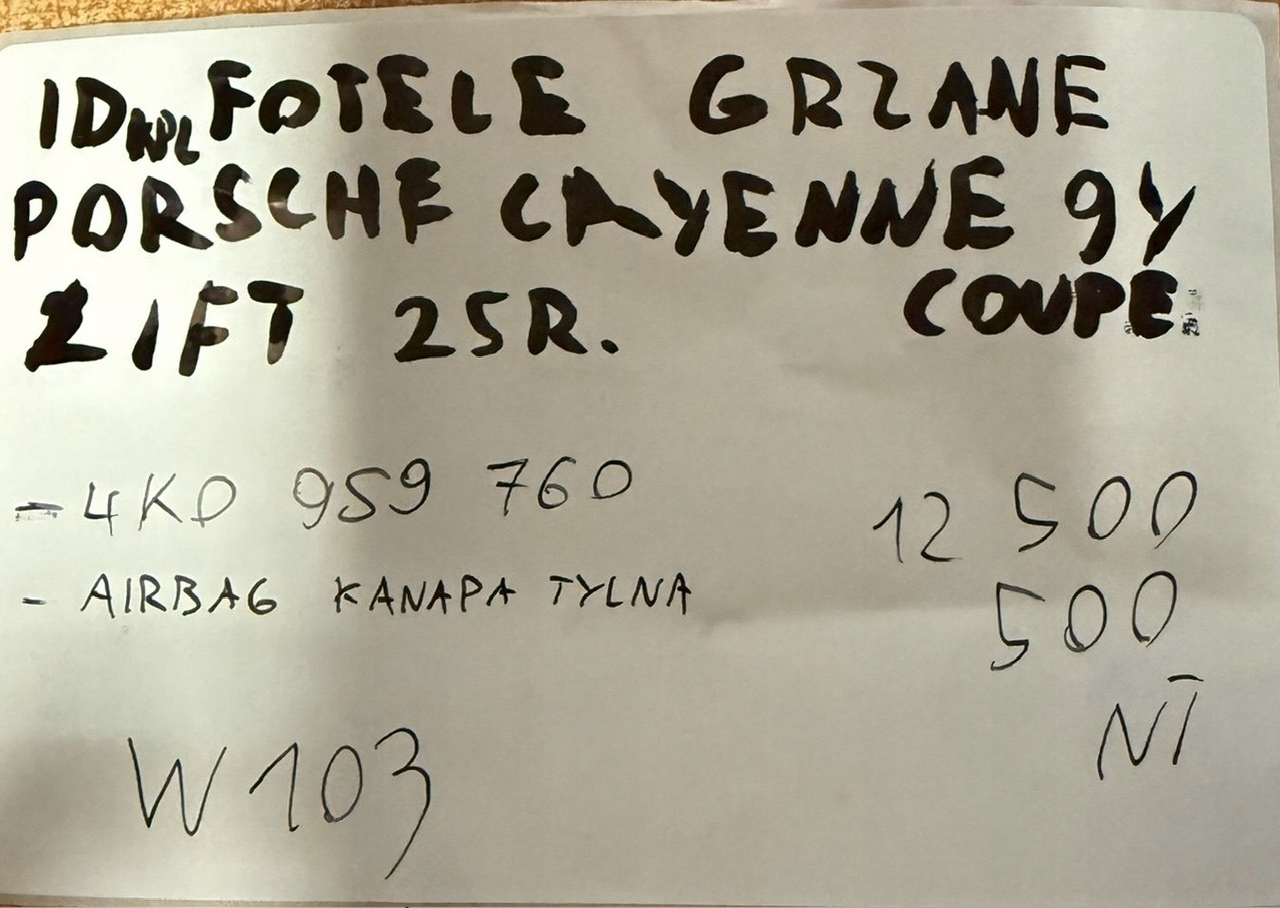 ID KPL FOTELE GRZANE
PORSCHE CAYENNE 9Y
LIFT 25R. COUPE
- 4KD 959 760 12 500
- AIRBAG KANAPA TYLNA 500
NT
W103